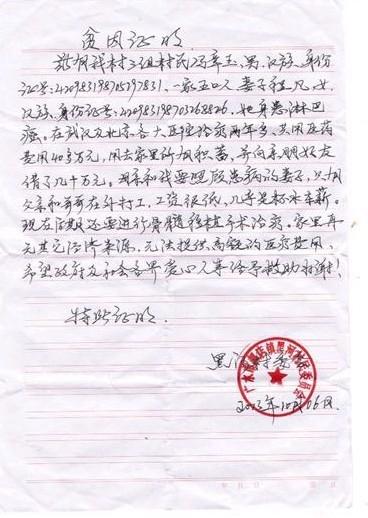 贫困证明
兹有我村三组村民冯章玉、男、汉族、身份
证号: 一家五口人妻子 凡、女
汉族、身份证号: 她身患淋巴
癌。在武汉及北京各大医院诊疗两年多、共用医药
费用40多万元,用去家里所有积蓄、并向亲朋好友
借了几十万元。母亲和我要照顾患病的妻子、只有
父亲和哥哥在外打工、工资很低、几乎是杯水车薪。
现在后期还要进行骨髓移植手术治疗。家里再
无其它经济来源、无法提供高额的医疗费用、
希望政府及社会各界爱心人士给予救助为谢!
特此证明。
黑河村委会
广水市 店镇黑河村 委员会
10月06日